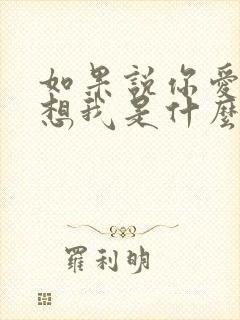 如果說你愛
想我是什麼
羅利明